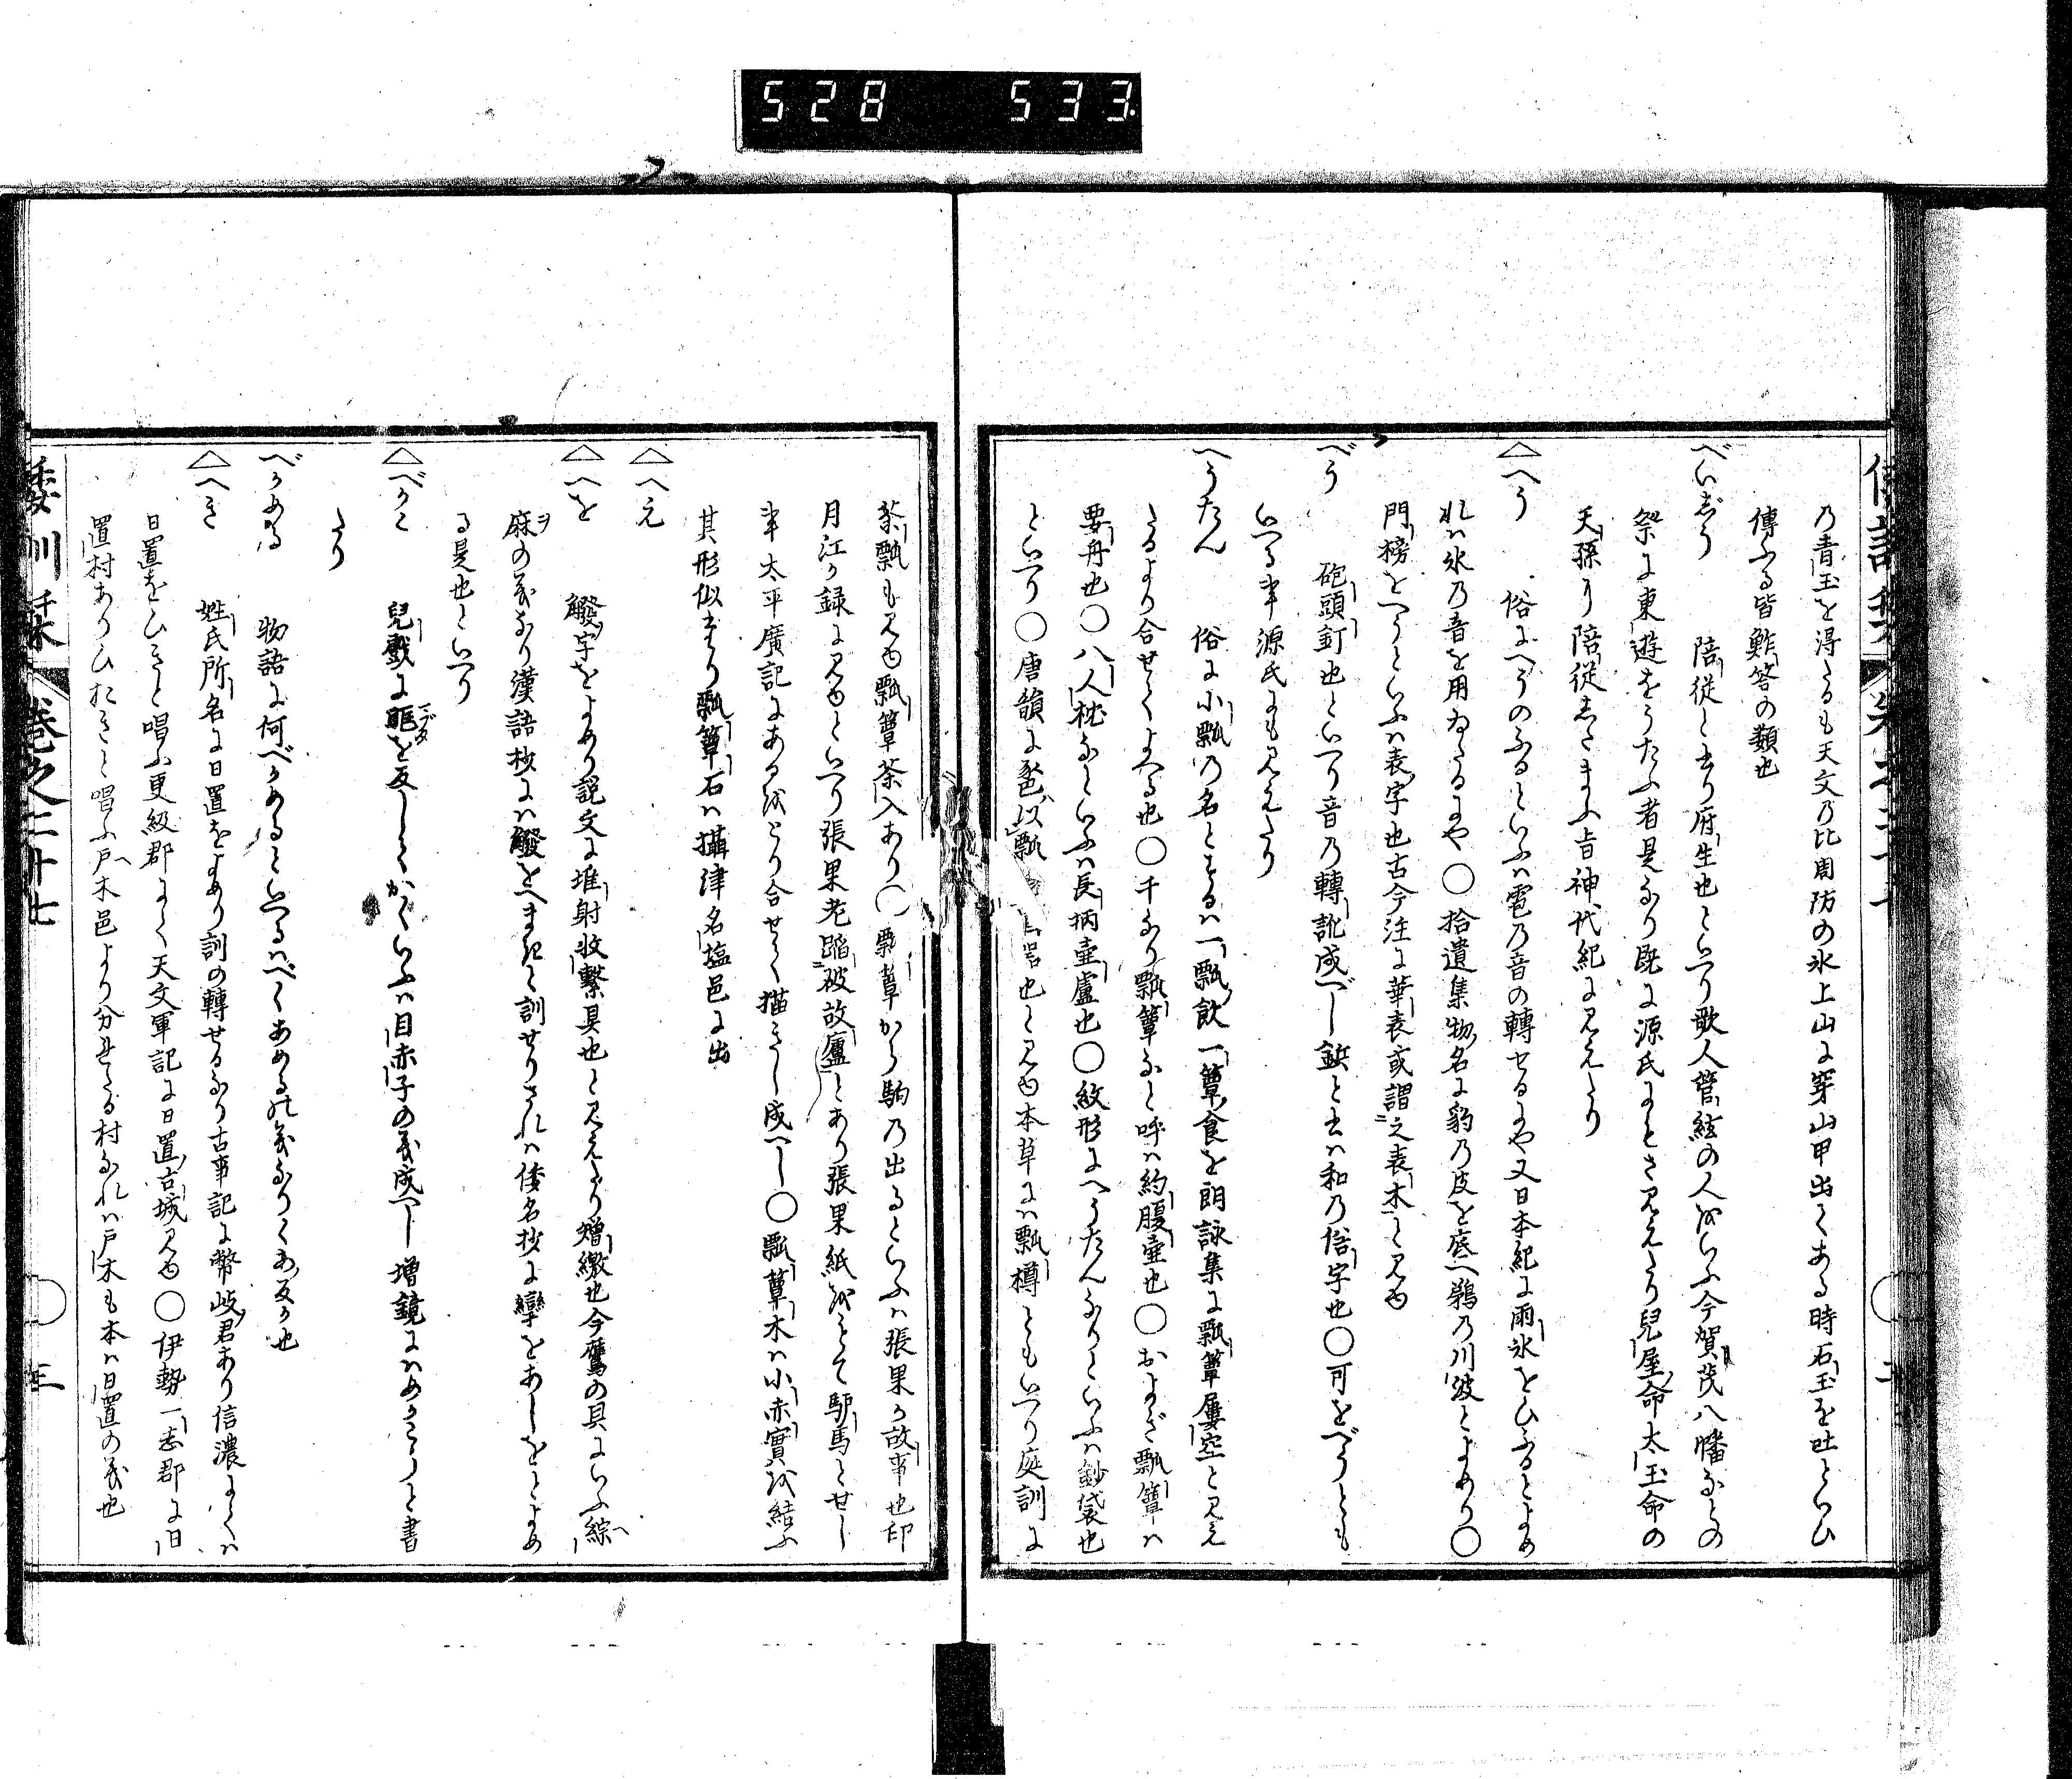 528 533
乃青玉を得たるも天文乃比周防の氷上山に穿山甲出てある時石玉を吐といひ
傳ふる皆鮓答の類也
べいじう 陪従と書り府生也といへり歌人管絃の人をいふ今賀茂八幡などの
祭に東遊をうたふ者是なり既に源氏にもさ見えたり兒屋命太玉命の
天孫に陪従したまふ旨神代紀に見えたり
△へう 俗にへうのふるといふは雹乃音の轉せるにや又日本紀に雨氷をひふるとよめ
れは氷乃音を用ゐたるにや○拾遺集物名に豹乃皮を底へ鶚乃川波とよめり○
門榜をへうといふは表字也古今注に華表或謂之表木と見ゆ
べう 砲頭釘也といへり音乃轉訛成べし鋲と書は和乃俗字也○可をべうとも
いへる事源氏にも見えたり
へうたん 俗に小瓢乃名とするは一瓢飲一簞食を朗詠集に瓢簞屢空と見え
たるより合せてよべる也○千なり瓢簞など呼は約腹壷也○およぎ瓢簞は
要舟也○八人枕などいふは長柄壷盧也○紋形にへうたんなりといふは鈔袋也
といへり○唐韻に 以瓢 也と見ゆ本草には瓢樽ともいへり庭訓に
茶瓢も見ゆ瓢簞茶入あり○瓢簞から駒乃出るといふは張果か故事也印
月江か録に見ゆといへり張果老蹈破故廬とあり張果紙をもて驢馬とせし
事太平廣記にあるをとり合せて描きし成へし○瓢簞木は小赤實を結ふ
其形似たり瓢簞石は攝津名塩邑に出
△へえ
△へを 字をよめり説文に堆射收繋具也と見えたり矰繳也今鷹の具にいふ綜
麻の義なり漢語抄には をへまきと訓せりされは倭名抄に攣をあしをとよめ
る是也といへり
△べかこ 兒戯に眶を反してかくいふは目赤子の義成へし増鏡にはめかこうと書
たり
べかめる 物語に何べかめるといへるはべくあめるの義なりくあ反か也
△へき 姓氏所名に日置をよめり訓の轉せるなり古事記に幣岐君あり信濃にては
日置をひきと唱ふ更級郡にて天文軍記に日置古城見ゆ○伊勢一志郡に日
置村ありひおきと唱ふ戸木邑より分れたる村なれは戸木も本は日置の義也
倭訓栞 巻之二十七 三